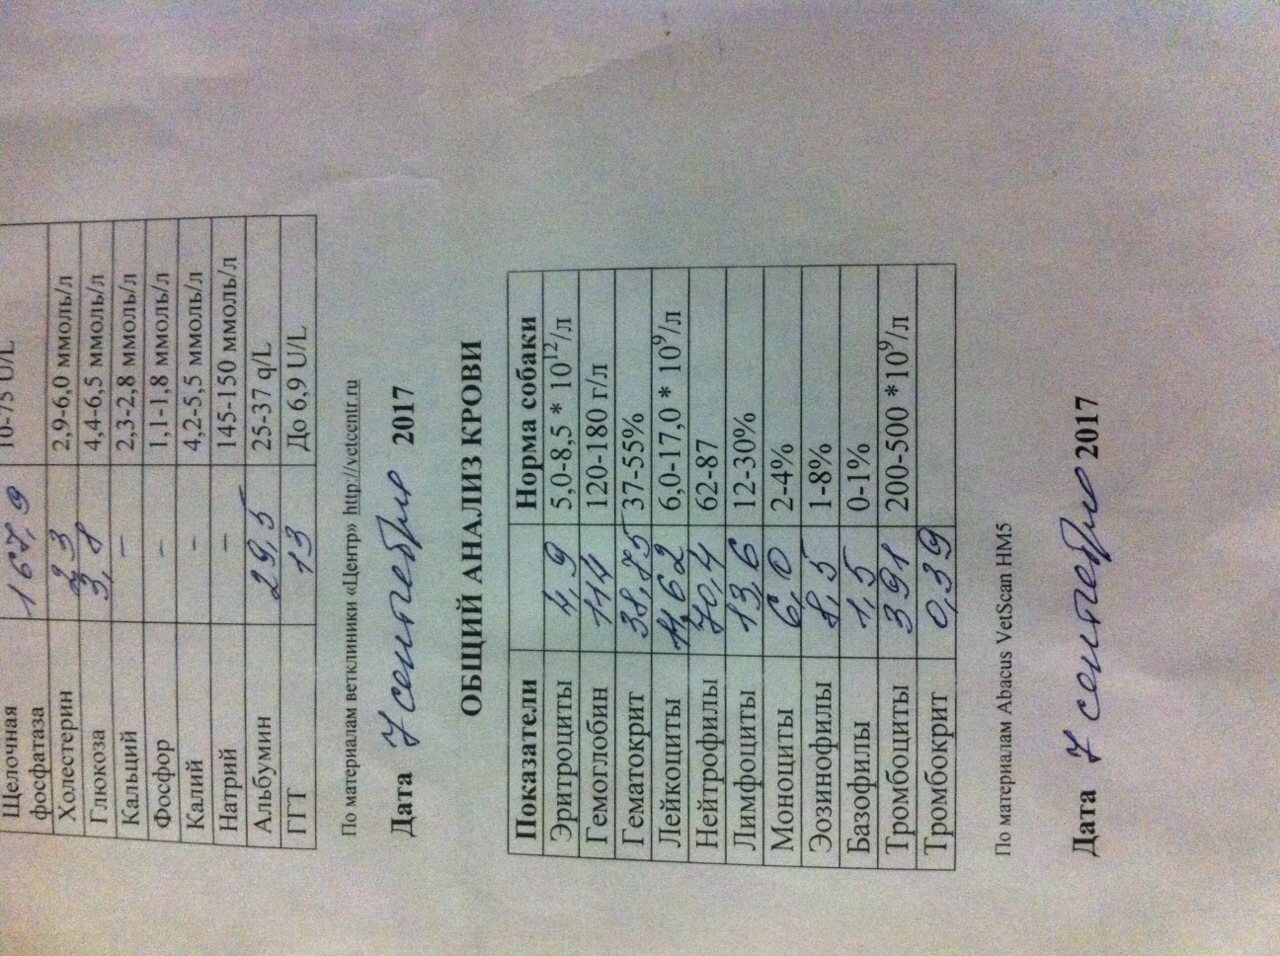 Щелочная фосфатаза 167,9 10-75 U/L
Холестерин 2,3 2,9-6,0 ммоль/л
Глюкоза 3,8 4,4-6,5 ммоль/л
Кальций - 2,3-2,8 ммоль/л
Фосфор - 1,1-1,8 ммоль/л
Калий - 4,2-5,5 ммоль/л
Натрий - 145-150 ммоль/л
Альбумин 29,5 25-37 q/L
ГГТ 13 До 6,9 U/L
По материалам ветклиники «Центр» http://vetcentr.ru
Дата 7 сентября 2017
ОБЩИЙ АНАЛИЗ КРОВИ
Показатели Норма собаки
Эритроциты 4,9 5,0-8,5 * 10¹²/л
Гемоглобин 114 120-180 г/л
Гематокрит 38,75 37-55%
Лейкоциты 6,0-17,0 * 10⁹/л
Нейтрофилы 70,4 62-87
Лимфоциты 13,6 12-30%
Моноциты 6,0 2-4%
Эозинофилы 8,5 1-8%
Базофилы 1,5 0-1%
Тромбоциты 391 200-500 *10⁹/л
Тромбокрит 0,39
По материалам Abacus VetScan HM5
Дата 7 сентября 2017